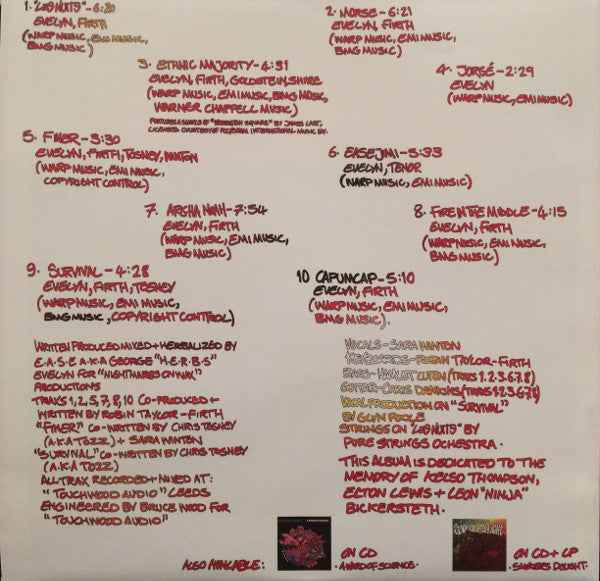 1. "LES NUITS" - 6:20
EVELYN, FIRTH
(WARP MUSIC, EMI MUSIC,
BMG MUSIC)
2. MORSE - 6:21
EVELYN, FIRTH
(WARP MUSIC, EMI MUSIC,
BMG MUSIC)
3. ETHNIC MAJORITY - 4:31
EVELYN, FIRTH, GOLDSTEIN, SHIRE
(WARP MUSIC, EMI MUSIC, BMG MUSIC,
WARNER CHAPPELL MUSIC)
FEATURES A SAMPLE OF "WASHINGTON SQUARE" BY JAMES LAST,
LICENSED COURTESY OF POLYGRAM INTERNATIONAL MUSIC BV.
4. JORSÉ - 2:29
EVELYN
(WARP MUSIC, EMI MUSIC)
5. FINER - 3:30
EVELYN, FIRTH, TOSNEY, WINTON
(WARP MUSIC, EMI MUSIC,
COPYRIGHT CONTROL)
6. EASEJIMI - 5:33
EVELYN, TENOR
(WARP MUSIC, EMI MUSIC)
7. ARGHA NOAH - 7:54
EVELYN, FIRTH
(WARP MUSIC, EMI MUSIC,
BMG MUSIC)
8. FIRE IN THE MIDDLE - 4:15
EVELYN, FIRTH
(WARP MUSIC, EMI MUSIC,
BMG MUSIC)
9. SURVIVAL - 4:28
EVELYN, FIRTH, TOSNEY
(WARP MUSIC, EMI MUSIC,
BMG MUSIC, COPYRIGHT CONTROL)
10 CAPUMCAP - 5:10
EVELYN, FIRTH
(WARP MUSIC, EMI MUSIC,
BMG MUSIC).
WRITTEN PRODUCED MIXED + HERBALIZED BY
E.A.S.E A.K.A GEORGE "H.E.R.B.S"
EVELYN FOR "NIGHTMARES ON WAX"
PRODUCTIONS
TRAX 1, 2, 5, 7, 8, 10 CO-PRODUCED +
WRITTEN BY ROBIN TAYLOR - FIRTH
"FINER" CO-WRITTEN BY CHRIS TOSNEY
(A.K.A TOZZ) + SARA WINTON
"SURVIVAL" CO-WRITTEN BY CHRIS TOSNEY
(A.K.A TOZZ)
ALL TRAX RECORDED + MIXED AT:
"TOUCHWOOD AUDIO" LEEDS
ENGINEERED BY BRUCE WOOD FOR
"TOUCHWOOD AUDIO"
VOCALS - SARA WINTON
KEYBOARDS - ROBIN TAYLOR-FIRTH
BASS - HAMLET LUTON (TRAX 1.2.3.6.7.8)
GUITAR - CHRIS DAWKINS (TRAX 1.2.3.6.7.8)
VOCAL PRODUCTION ON "SURVIVAL"
BY GLYN POOLE
STRINGS ON "LES NUITS" BY
PURE STRINGS OCHESTRA.
THIS ALBUM IS DEDICATED TO THE
MEMORY OF KELSO THOMPSON,
ELTON LEWIS + LEON "NINJA"
BICKERSTETH.
ALSO AVAILABLE:
ON CD
A WORD OF SCIENCE.
ON CD + LP
SMOKERS DELIGHT.